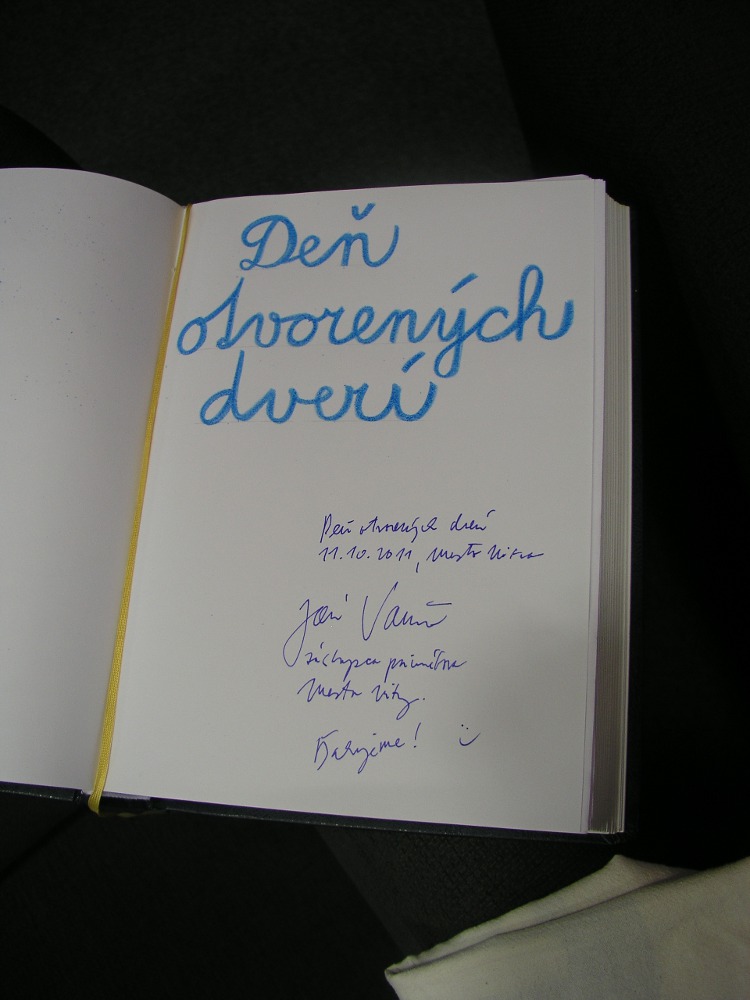 Deň
otvorených
dverí
Deň otvorených dverí
11.10.2011, Mesto Nitra
Ján Vančo
zástupca primátora
Mesta Nitry.
Ďakujeme! :)